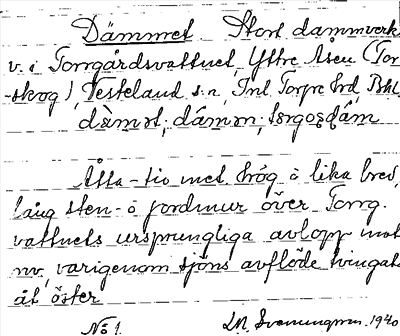 Dämmet. Stort dammverk
v. i Torrgårdsvattnet, Yttre Åsen (Tor-
-skog), Vesteland s:n, Inl. Torpe hd, Bhl.
dämmet, dämm,
Åtta-tio met. hög o lika bred,
lång sten- o jordmur över Torrg.
vattnets ursprungliga avlopp mot
nv, varigenom sjöns avflöde tvingats
åt öster
No 1. Svenungsson 1940